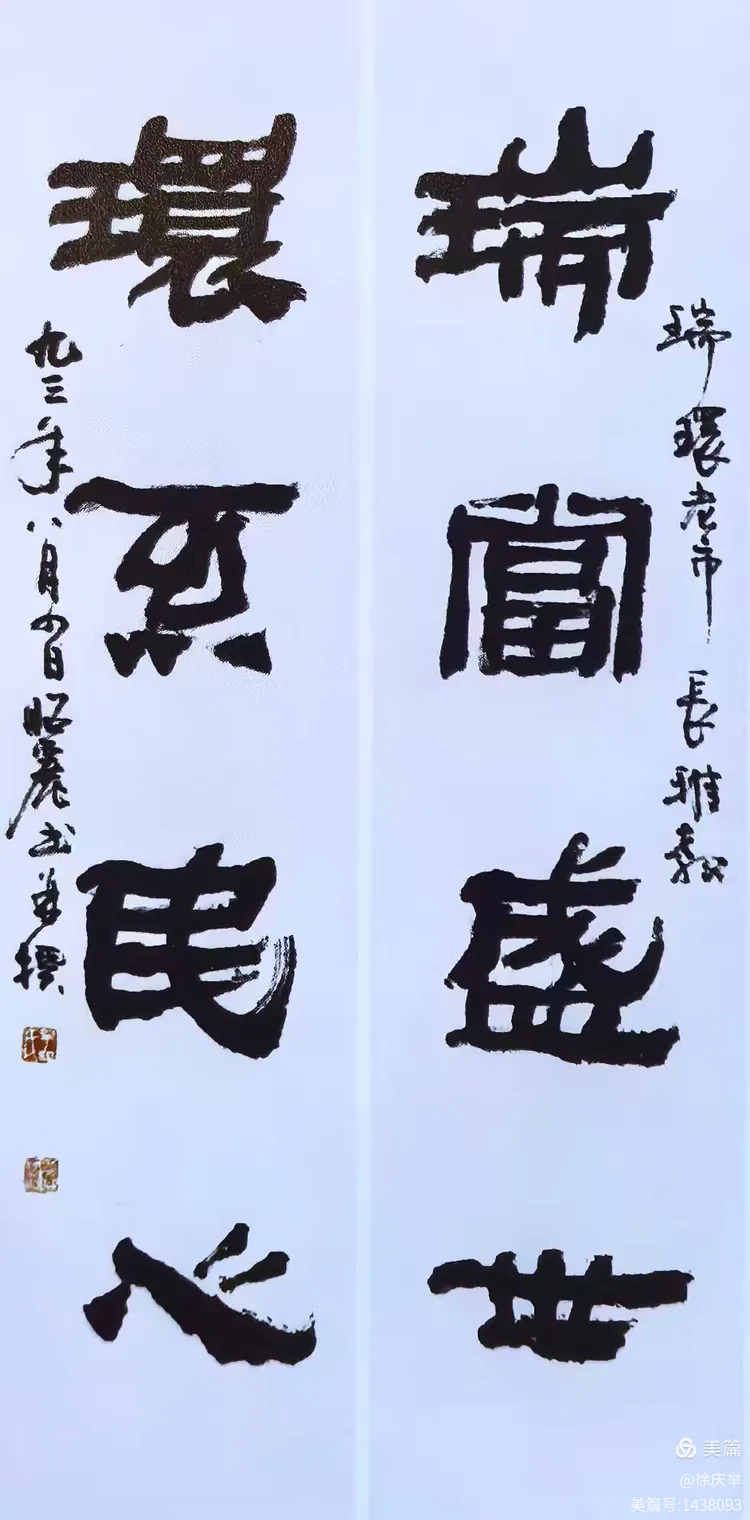 瑞環老市長雅教
瑞富盛世
環系民心
九三年八月日昭麗书并撰
美篇
@徐庆举
美篇号:1438093